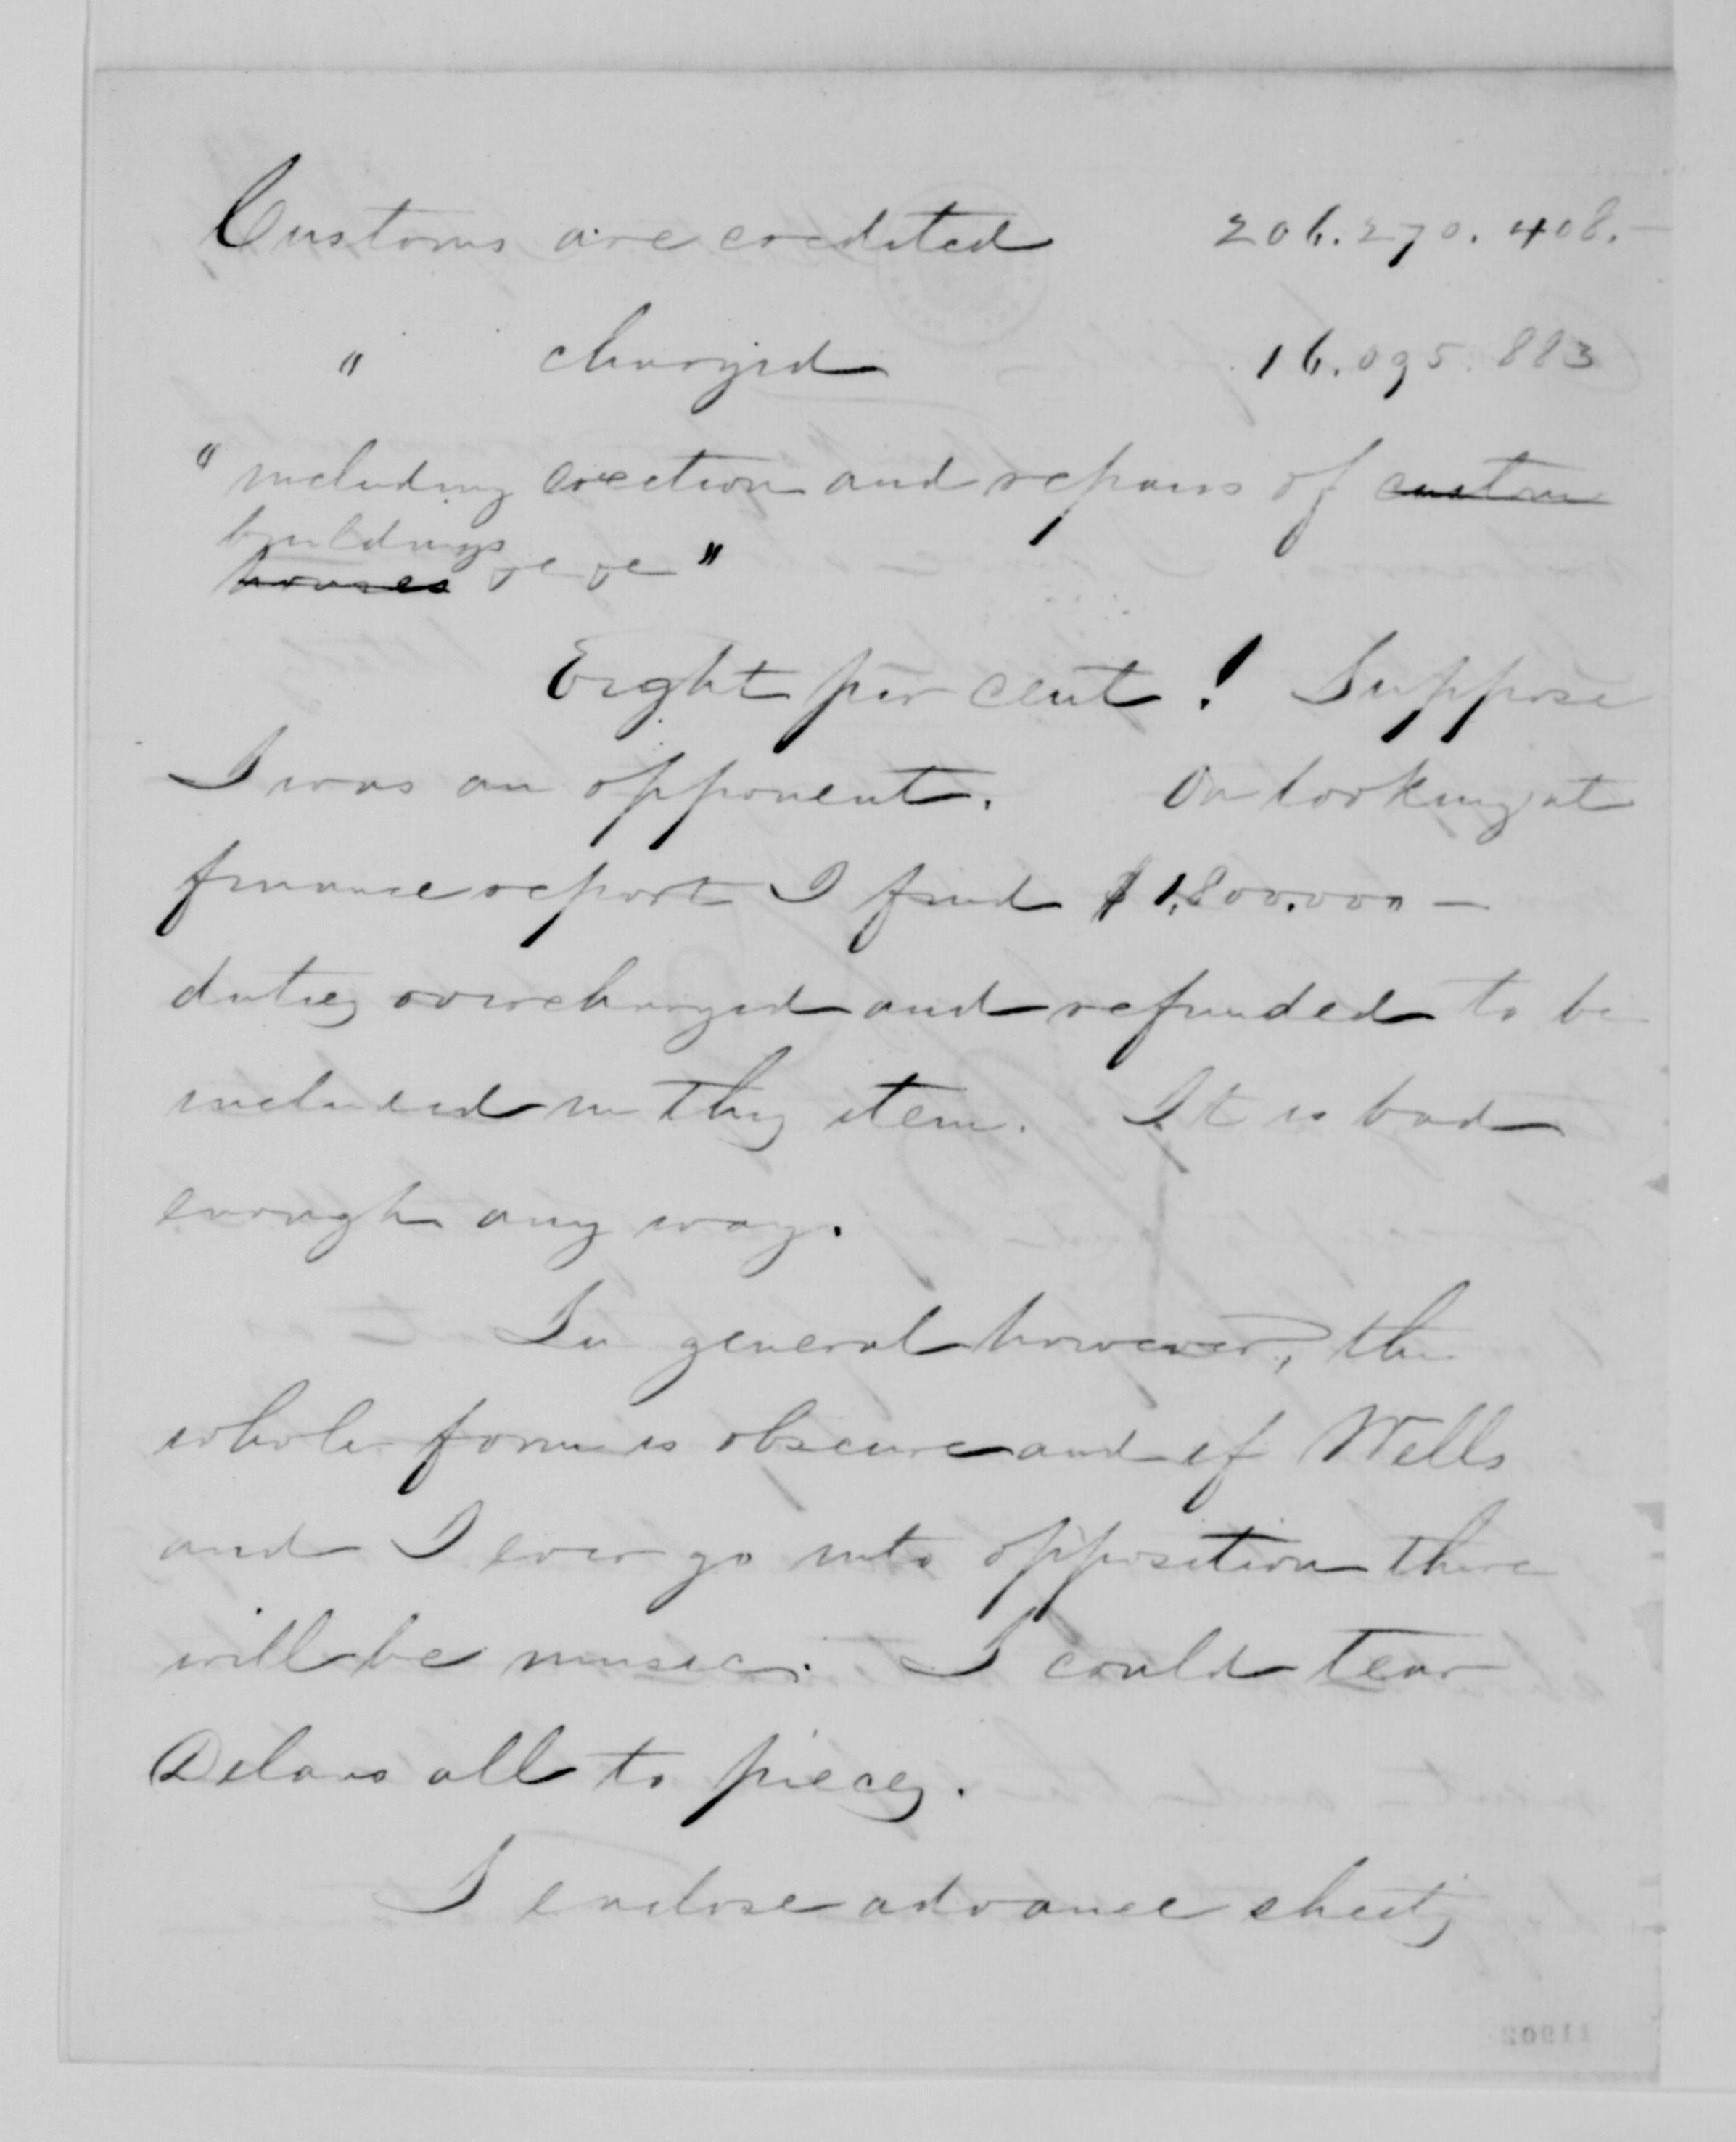 Customs are credited 206.270.408.—
" charged 16.095.883
"including erection and repairs of custom
buildings
houses &c &c"
Eight per cent! Suppose
I was an opponent. On looking at
finance report I find $1,800.000—
duties overcharged and refunded to be
included in this item. It is bad
enough any way.
In general however, the
whole form is obscure and if Wells
and I ever go into opposition there
will be music. I could tear
Delano all to pieces.
I enclose advance sheets